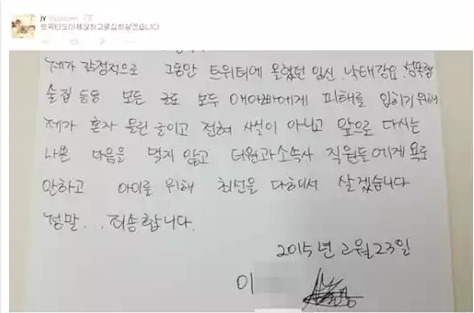 JY
트위터도이제접하고물집하살겠습니다
제가 감정적으로 그동안 트위터에 올렸던 임신, 낙태강요, 성폭행
술집 등등 모든 글로 모두 애아빠에게 피해를 입히기 위해
제가 혼자 올린 글이고 전혀 사실이 아니고 앞으로 다시는
나쁜 마음을 먹지 않고 더원과 소속사 직원들에게 욕도
안하고 아이를 위해 최선을 다해서 살겠습니다
정말.. 죄송합니다.
2015년 2월 23일
이